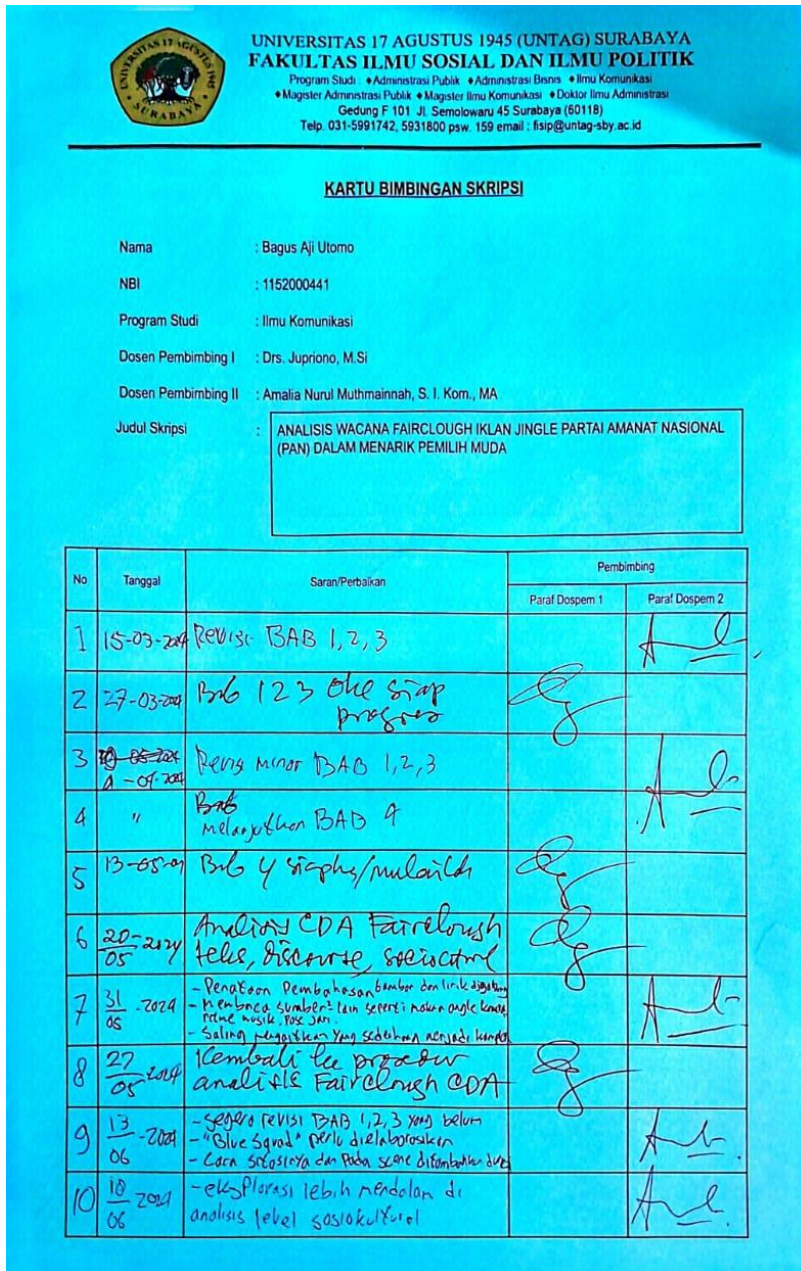 UNIVERSITAS 17 AGUSTUS 1945
SURABAYA
UNIVERSITAS 17 AGUSTUS 1945 (UNTAG) SURABAYA
FAKULTAS ILMU SOSIAL DAN ILMU POLITIK
Program Studi : ♦Administrasi Publik ♦Administrasi Bisnis ♦Ilmu Komunikasi
♦Magister Administrasi Publik ♦Magister Ilmu Komunikasi ♦Doktor Ilmu Administrasi
Gedung F 101 Jl. Semolowaru 45 Surabaya (60118)
Telp. 031-5991742, 5931800 psw. 159 email : fisip@untag-sby.ac.id
KARTU BIMBINGAN SKRIPSI
Nama : Bagus Aji Utomo
NBI : 1152000441
Program Studi : Ilmu Komunikasi
Dosen Pembimbing I : Drs. Jupriono, M.Si
Dosen Pembimbing II : Amalia Nurul Muthmainnah, S. I. Kom., MA
Judul Skripsi : ANALISIS WACANA FAIRCLOUGH IKLAN JINGLE PARTAI AMANAT NASIONAL
(PAN) DALAM MENARIK PEMILIH MUDA
No Tanggal Saran/Perbaikan Pembimbing
Paraf Dospem 1 Paraf Dospem 2
1 15-03-2024 Revisi BAB 1,2,3
2 27-03-2024 Bab 123 oke siap
progres
3 Revisi Minor BAB 1,2,3
4 " Bab
melanjutkan BAB 4
5 13-05- Bab 4
6 20-05 2024 Analisis CDA Fairclough
teks, discourse,
7 31/05 -2024 - Penataan Pembahasan gambar dan lirik
- Membaca sumber² lain seperti makna angle kamera
musik, Pose jari.
- Saling yang sederhana menjadi
8 27/05 2024 Kembali ke
analisis Fairclough CDA
9 13/06 -2024 - segera revisi BAB 1,2,3 yang belum
- "Blue Squad" perlu dielaborasikan
- Cara sitasinya dan Pada scene ditambahkan
10 06 2024 - eksplorasi lebih mendalam di
analisis level sosiokultural